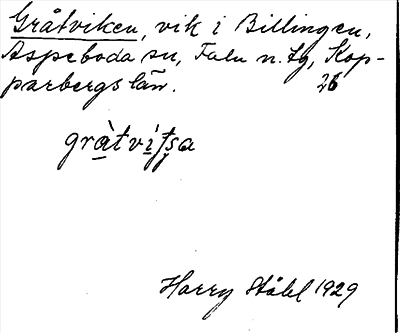 Gråtviken, vik i Billingen,
Aspeboda sn, Falu n. tg, Kop-
parbergs län. 26
gràtvitʂa
Harry Ståhl 1929